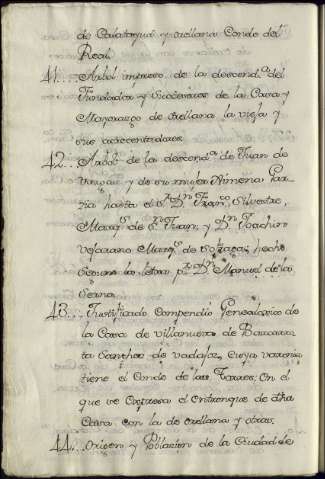 de Calatayud y orellana Conde del
Real.
41... Arbol impreso de la descend.ª del
Fundador y Succesores de la Casa y
Mayorazgo de orellana la vieja y
sus ascendientes
42... Arbol de la descend.ª de Juan de
Vargas y de su muger Ximena Gar
zia hasta el S.r D.n Fran.co Silvestre,
Marq.s de S.n Juan, y D.n Joachin
vejarano Marq.s de Sofraga, hecho
segun la letra p.r D.n Manuel de la
Serna
43... Justificado Compendio Genealogico de
la Casa de villanueva de Barcarro
ta Sanchez de vadajoz, cuya varonia
tiene el Conde de las Torres, en el
que se expresa el entronque de dha
Casa con la de orellana y otras.
44... Origen y Poblacion de la Ciudad de